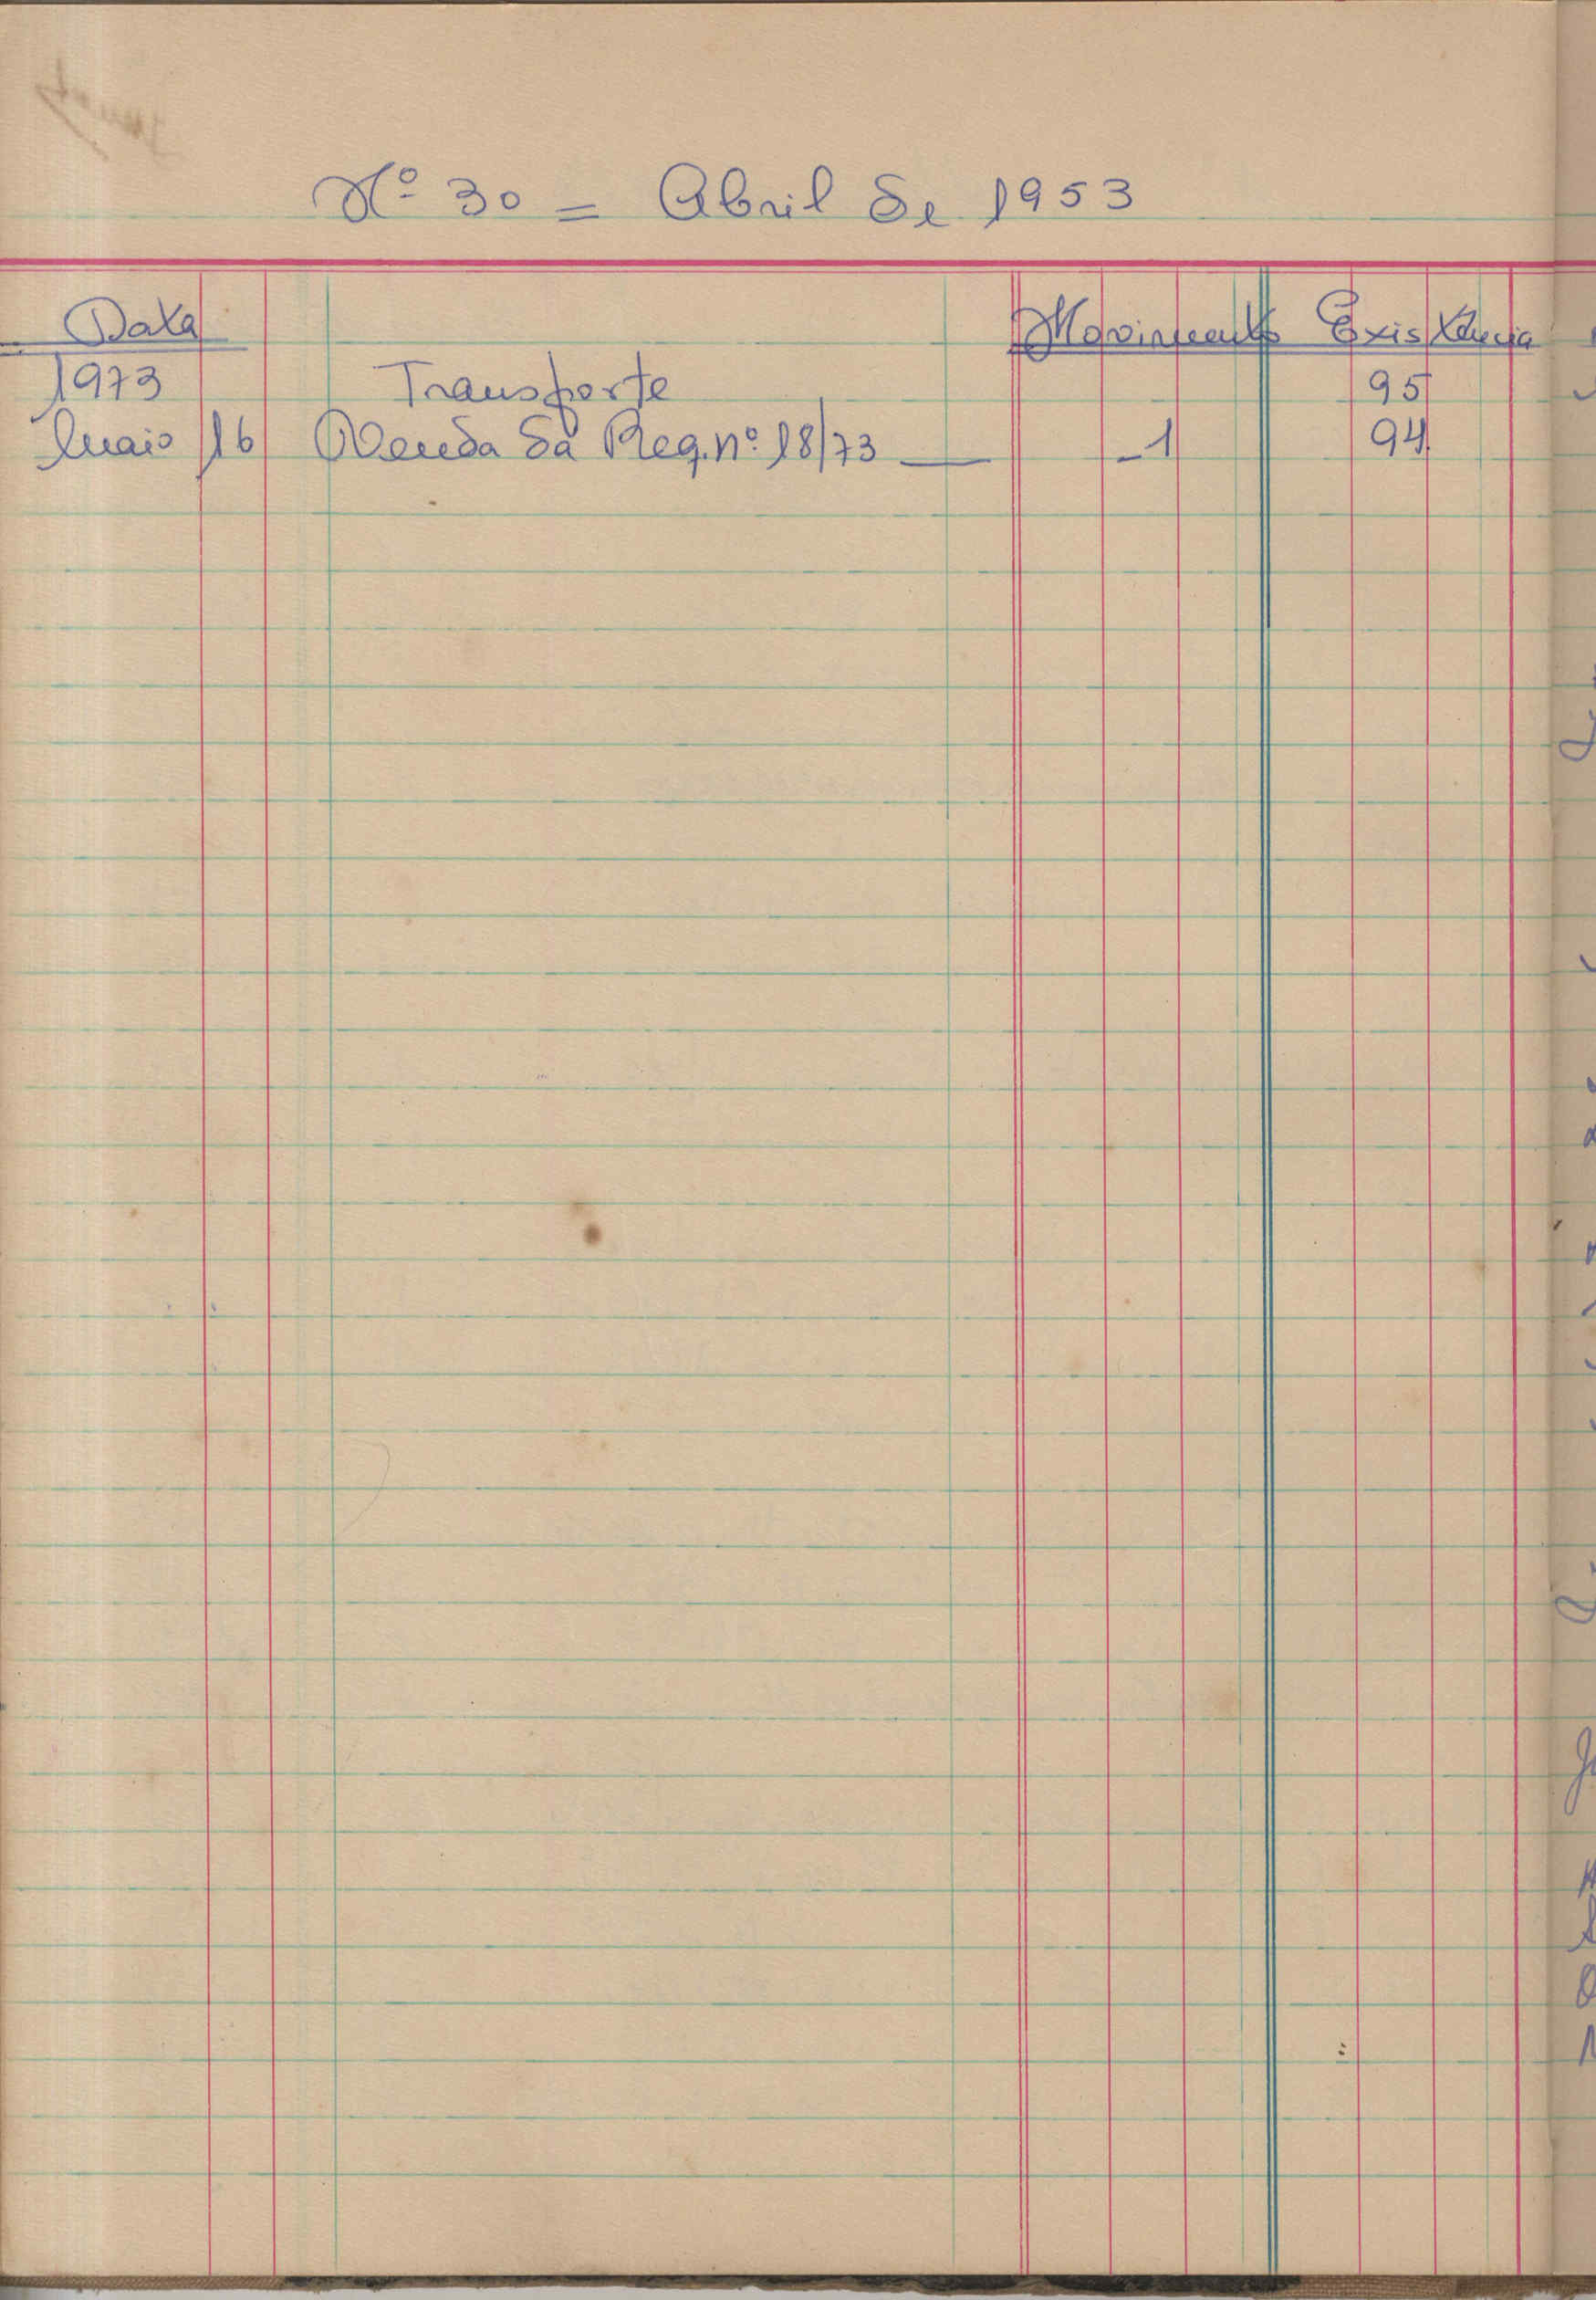 Nº 30 = Abril de 1953
Data Movimento Existência
1973 Transporte 95
Maio 16 Venda da Req. nº 18/73 — -1 94